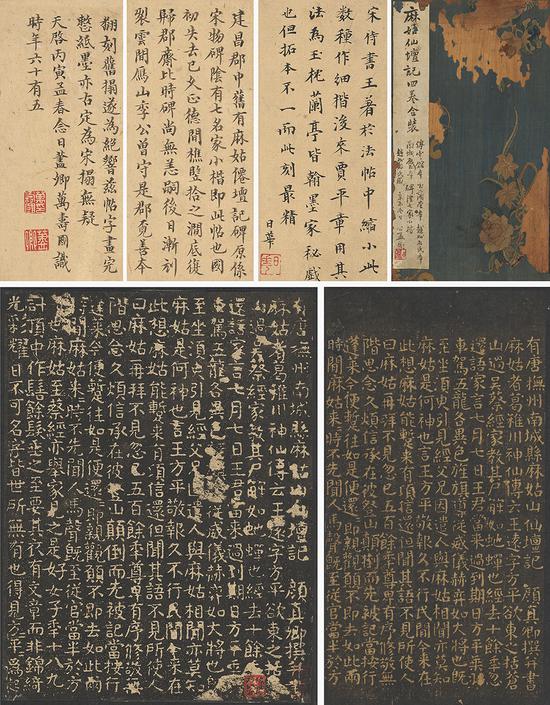 麻姑仙壇記四卷合裝
宋侍書王著於法帖中縮小此
數種作細楷後來賈平章用其
法為玉枕蘭亭皆翰墨家秘戲
也但拓本不一而此刻最精
日華
建昌郡中舊有麻姑僊壇記碑原係
宋物碑陰有七名家小楷即此帖也國
初失去已久正德間樵豎拾之澗底復
歸郡齋比時碑尚無恙嗣後日漸剝
裂雲間馮山李公曾守是郡覓善本
翻刻舊搨遂為絕響茲帖字畫完
整紙墨亦古定為宋搨無疑
天啓丙寅孟春念日畫卿萬壽國識
時年六十有五
有唐撫州南城縣麻姑山仙壇記 顏真卿撰并書
麻姑者葛稚川神仙傳云王遠字方平欲東之括蒼
山過吳蔡經家教其尸解如蛇蟬也經去十餘年忽
還語家言七月七日王君當來過到期日方平乘羽
車駕五龍各異色旌旗導從威儀赫弈如大將也既
至坐須臾引見經父兄因遣人與麻姑相聞亦莫知
麻姑是何神也言王方平敬報久不行民間今來在
此想麻姑能暫來有頃信還但聞其語不見所使人
曰麻姑再拜不見忽已五百餘年尊卑有序修敬無
階思念久煩信承在彼登山顛倒而先被記當按行
蓬萊今便暫往如是便還還即親觀願不即去如此兩
時間麻姑來時不先聞人馬聲既至從官當半於方
有唐撫州南城縣麻姑山仙壇記 顏真卿撰并書
麻姑者葛稚川神仙傳云王遠字方平欲東之括蒼
山過吳蔡經家教其尸解如蛇蟬也經去十餘年忽
還語家言七月七日王君當來過到期日方平乘
車駕五龍各異色旌旗導從威儀赫弈如大將也
至坐須臾引見經父兄因遣人與麻姑相聞亦莫知
麻姑是何神也言王方平敬報久不行民間今來在
此想麻姑能暫來有頃信還但聞其語不見所使人
曰麻姑再拜不見忽已五百餘年尊卑有序修敬無
階思念久煩信承在彼登山顛倒而先被記當按行
蓬萊今便暫往如是便還還即親觀願不即去如此兩
時間麻姑來時不先聞人馬聲既至從官當半於方
平也麻姑至蔡經亦舉家見之是好女子年十八九
許頂中作髻餘髮垂之至要其衣有文章而非錦綺
光彩耀日不可名字皆世所無有也得見方平為起